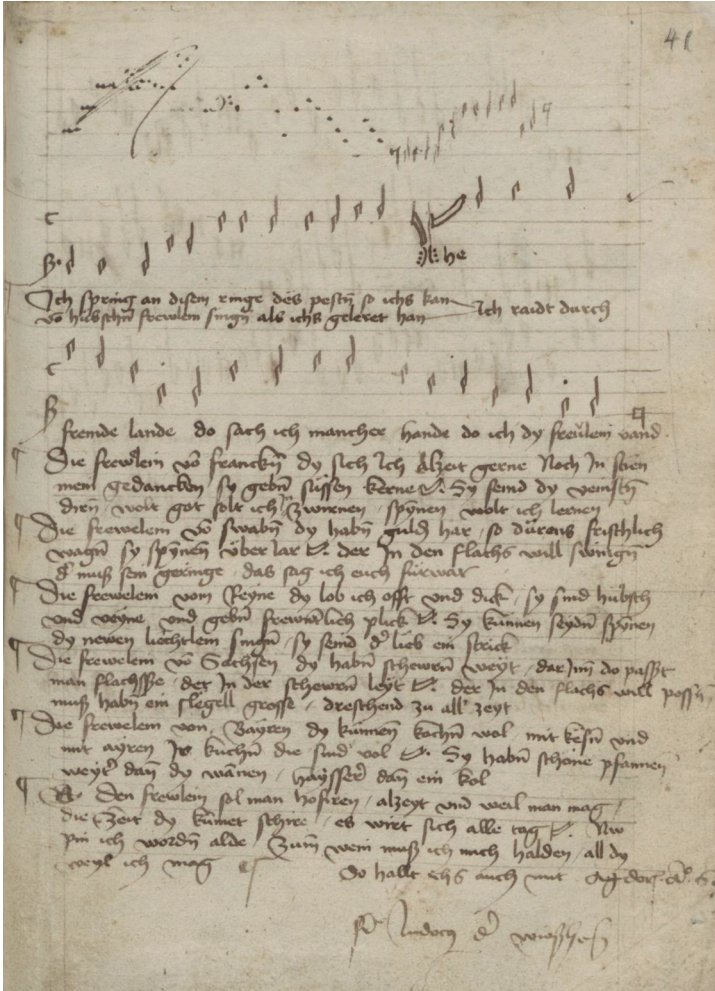 41
he
Ich spring an disem ringe des pesten so ichs kan
vō hubschn̄ frewlein singn̄ als ichs geleret han Ich raidt durch
fremde lande do sach ich mancher hande do ich dy freulein vand
Die frewlein vō franckn̄ dy sich Ich Alzeit gerne Noch In stien
mein gedanckn̄ sy gebn̄ süssen kerne Sy seind dy veinstn̄
dirn̄ wolt got solt ich zwirnen spynen wolt ich lernen
Die frewelein vō swabn̄ dy habn̄ guldn̄ har so dürens frischlich
wagn̄ sy spynen über lar der In den flachs will swingn̄
d' muß sein geringe das sag ich euch fürwar
Die frewelein vom Reyne dy lob ich offt vnd dick sy sind hübsch
vnd veyne vnd gebn̄ frewntlich plick Sy künnen seydn̄ spynen
dy newen liechtlein singn̄ sy seind d' lieb ein strick
Die frewelein vō Sachsen dy habn̄ schewrn̄ weyt dar Inn do passzt
man flachsse der In der schewrn̄ leyt der In den flachs will possn̄
muß habn̄ ein flegell grosse dreschend zu all' zeyt
Die frewelein von Bayren dy künnen kochn̄ wol mit kesn̄ vnd
mit ayren Ir kuchn̄ die sind vol Sy habn̄ schone pfannen
weyt' dan̄ dy wannen haysser dan̄ ein kol
Den frewlein sol man hofiren alzeyt vnd weil man mag
die Zeit dy kumet schire es wirt sich alle tag Nw
pin ich wordn̄ alde Zum wein muß ich mich halden all dy
weyl ich mag
Do hallt ichs auch mit